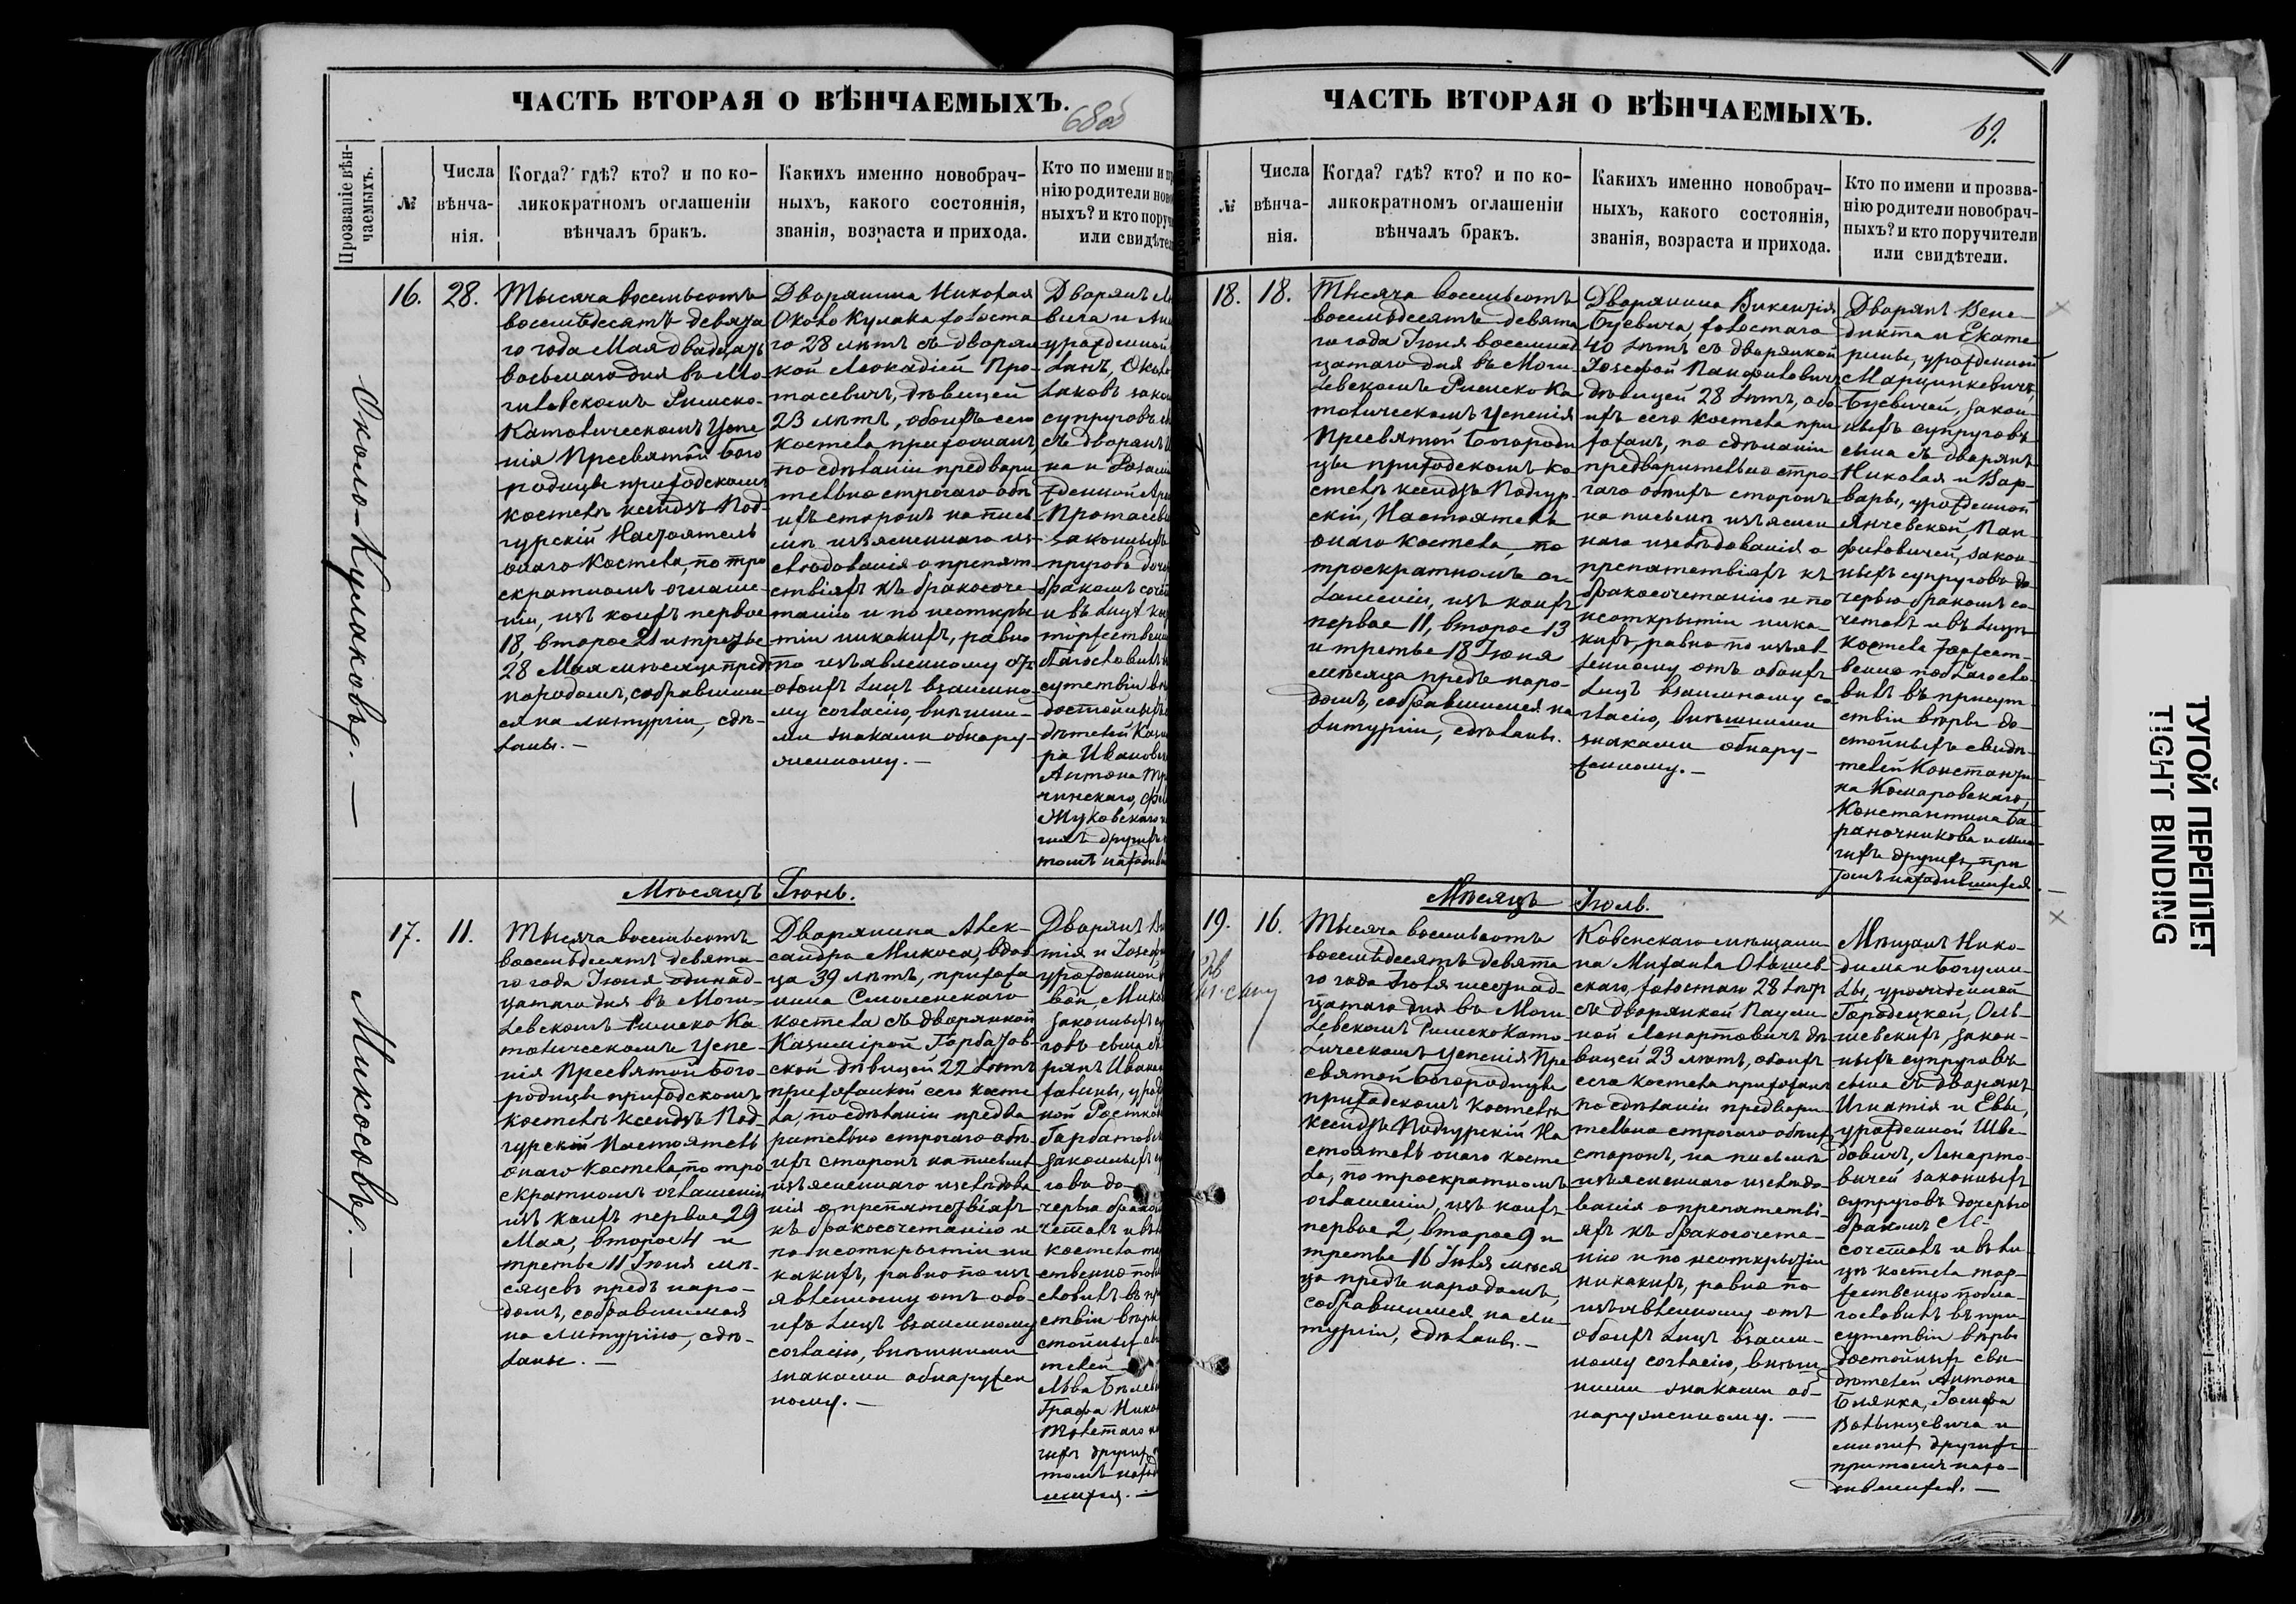 ЧАСТЬ ВТОРАЯ О ВѢНЧАЕМЫХЪ.
68об
Прозваніе вѣн-
чаемыхъ.
№
Числа
вѣнча-
нія.
Когда? гдѣ? кто? и по ко-
ликократномъ оглашеніи
вѣнчалъ бракъ.
Какихъ именно новобрач-
ныхъ, какого состоянія,
званія, возраста и прихода.
Кто по имени и пр
нію родители ново
ныхъ? и кто поруч
или свидѣтел
Около-Кулаковъ. —
16.
28.
Тысяча восемьсотъ
восемьдесятъ девята
го года Мая двадцать
восьмаго дня въ Мо-
гилевскомъ Римско-
Католическомъ Успе
нія Пресвятой Бого
родицы приходскомъ
костелѣ ксендзъ Под-
гурскій Настоятель
онаго костела, по тро
екратномъ оглаше-
ніи, изъ коихъ первое
18, второе 21 и третье
28 Мая мѣсяца предъ
народомъ, собравшим
ся на литургіи, сдѣ-
ланы. —
Дворянина Николая
Около Кулака холоста
го 28 лѣтъ съ дворян
кой Леокадіей Про-
тасевичъ, дѣвицей
23 лѣтъ, обоихъ сего
костела прихожанъ,
по сдѣланіи предвари
тельно строгаго обо
ихъ сторонъ на пись
мѣ изъясненнаго из
слѣдованія о препят
ствіяхъ къ бракосоче-
танію и по неоткры
тіи никакихъ, равно
по изъявленному отъ
обоихъ лицъ взаимно-
му согласію, внѣшни-
ми знаками обнару-
женному. —
Дворянъ
вича и
урожденной
Около
лаковъ закон
супруговъ
съ дворян
на и Розаліи
жденной
Протасеви
законныхъ
пруговъ доч
бракомъ сочет
и въ лицѣ кос
торжественно
благословилъ
сутствіи вѣ
достойныхъ
дѣтелей Кази
ра Иванови
Антона
чинскаго,
Жуковскаго
гихъ другихъ
томъ находив
Мѣсяцъ Іюнь.
Микосовъ. —
17.
11.
Тысяча восемьсотъ
восемьдесятъ девята-
го года Іюня одинад-
цатаго дня въ Моги-
левскомъ Римско Ка-
толическомъ Успе-
нія Пресвятой Бого-
родицы приходскомъ
костелѣ ксендзъ Под-
гурскій Настоятель
онаго костела, по тро
екратномъ оглашеніи
изъ коихъ первое 29
Мая, второе 4 и
третье 11 Іюня мѣ-
сяцевъ предъ наро-
домъ, собравшимся
на литургію, сдѣ-
ланы. —
Дворянина Алек-
сандра Микоса, вдов
ца 39 лѣтъ, прихожа
нина Смоленскаго
костела съ дворянкой
Казимірой Горбатов-
ской дѣвицей 22 лѣтъ
прихожанкой сего косте
ла, по сдѣланіи предва
рительно строгаго обо-
ихъ сторонъ на письмѣ
изъясненнаго изслѣдова
нія о препятствіяхъ
къ бракосочетанію и
по неоткрытіи ни
какихъ, равно по изъ
явленному отъ обо-
ихъ лицъ взаимному
согласію, внѣшними
знаками обнаружен
ному. —
Дворянъ
тія и Іосеф
урожденной
Мико
законныхъ су
говъ сына съ
рянъ Ивана
урожд
ной Ростков
Горбатовск
законныхъ су
говъ до-
черью браком
четалъ и въ
костела то
ственно побла
словилъ въ пр
ствіи вѣры
стойныхъ сви
телей
Льва
Графа Нико
Толстаго и
гихъ другихъ
томъ наход
шихся. —
ЧАСТЬ ВТОРАЯ О ВѢНЧАЕМЫХЪ.
69.
№
Числа
вѣнча-
нія.
Когда? гдѣ? кто? и по ко-
ликократномъ оглашеніи
вѣнчалъ бракъ.
Какихъ именно новобрач-
ныхъ, какого состоянія,
званія, возраста и прихода.
Кто по имени и прозва-
нію родители новобрач-
ныхъ? и кто поручители
или свидѣтели.
18.
18.
Тысяча восемьсотъ
восемьдесятъ девята
го года Іюня восемнад
цатаго дня въ Моги-
левскомъ Римско Ка-
толическомъ Успенія
Пресвятой Богороди
цы приходскомъ ко-
стелѣ ксендзъ Подгур-
скій, Настоятель
онаго костела, по
троекратномъ ог-
лашеніи, изъ коихъ
первое 11, второе 13
и третье 18 Іюня
мѣсяца предъ наро-
домъ, собравшимся на
литургіи, сдѣланы.
Дворянина Викентія
Буевича, холостаго
40 лѣтъ съ дворянкой
Іозефой Панфиловичъ
дѣвицей 28 лѣтъ, обо-
ихъ сего костела при
хожанъ, по сдѣланіи
предварительно стро-
гаго обоихъ сторонъ
на письмѣ изъяснен
наго изслѣдованія о
препятствіяхъ къ
бракосочетанію и по
неоткрытіи ника-
кихъ, равно по изъяв
ленному отъ обоихъ
лицъ взаимному со-
гласію, внѣшними
знаками обнару-
женному. —
Дворянъ Вене-
дикта и Екате
рины, урожденной
Марцинкевичъ,
Буевичей, закон-
ныхъ супруговъ
сына съ дворянъ
Николая и Вар-
вары, урожденной
Янчевской, Пан-
филовичей, закон
ныхъ супруговъ до-
черью бракомъ со-
четалъ и въ лицѣ
костела торжест-
венно поблагосло-
вилъ въ присут-
ствіи вѣры до-
стойныхъ свидѣ-
телей Константи-
на Комаровскаго,
Константина Ба-
раночникова и мно-
гихъ другихъ при
томъ находившихся —
Мѣсяцъ Іюль.
19.
16.
Тысяча восемьсотъ
восемьдесятъ девята
го года Іюля шестнад-
цатаго дня въ Моги
левскомъ Римско Като-
лическомъ Успенія Пре
святой Богородицы
приходскомъ костелѣ
ксендзъ Подгурскій На
стоятель онаго косте
ла, по троекратномъ
оглашеніи, изъ коихъ
первое 2, второе 9 и
третье 16 Іюля мѣся
ца предъ народомъ,
собравшимся на ли-
тургіи, сдѣланы. —
Ковенскаго мѣщани
на Михаила Ольшев
скаго, холостаго 28 лѣтъ
съ дворянкой Паули-
ной Ленартовичъ дѣ
вицей 23 лѣтъ, обоихъ
сего костела прихожанъ
по сдѣланіи предвари-
тельно строгаго обоихъ
сторонъ, на письмѣ
изъясненнаго изслѣдо-
ванія о препятстві-
яхъ къ бракосочета-
нію и по неоткрытіи
никакихъ, равно по
изъявленному отъ
обоихъ лицъ взаим-
ному согласію, внѣш-
ними знаками об-
наруженному. —
Мѣщанъ Нико-
дима и Богуми-
лы, урожденной
Городецкой, Оль-
шевскихъ, закон-
ныхъ супруговъ
сына съ дворянъ
Игнатія и Евы,
урожденной Шве-
довичъ, Ленарто-
вичей законныхъ
супруговъ дочерью
бракомъ
сочеталъ и въ ли-
цѣ костела тор-
жественно побла-
гословилъ въ при-
сутствіи вѣры
достойныхъ сви-
дѣтелей Антона
Іосифа
Волынцевича и
многихъ другихъ
притомъ нахо-
дившихся. —
ТУГОЙ ПЕРЕПЛЕТ
TIGHT BINDING